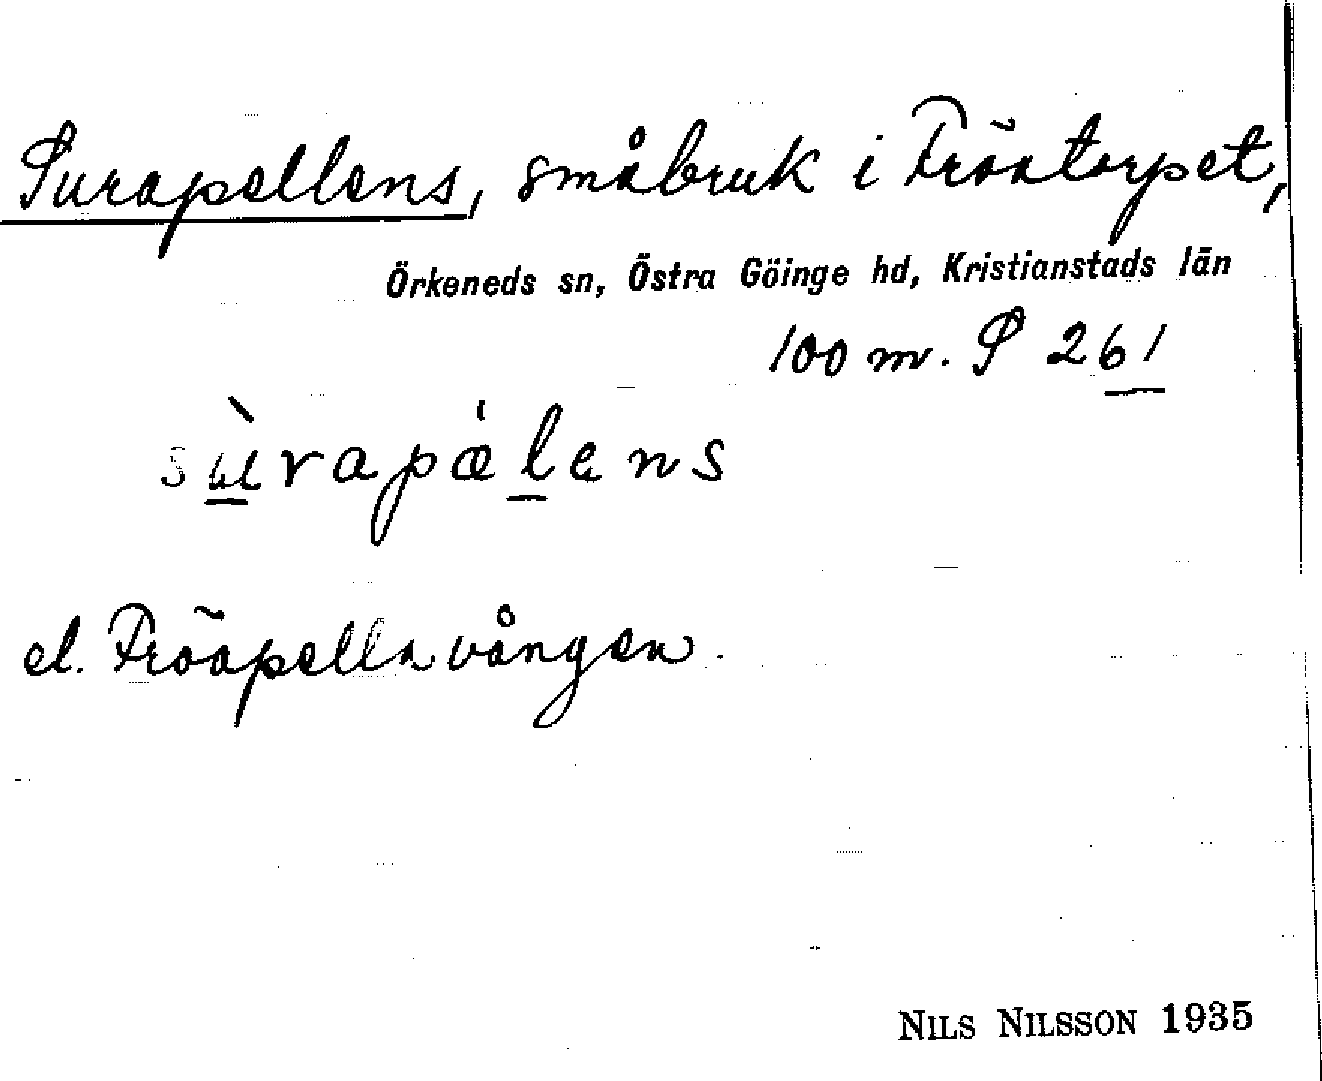 Surapellens, småbruk i Fröatorpet,
Örkeneds sn, Östra Göinge hd, Kristianstads län
100 m. S 261
sùrapælens
el. Fröapellavången.
NILS NILSSON 1935